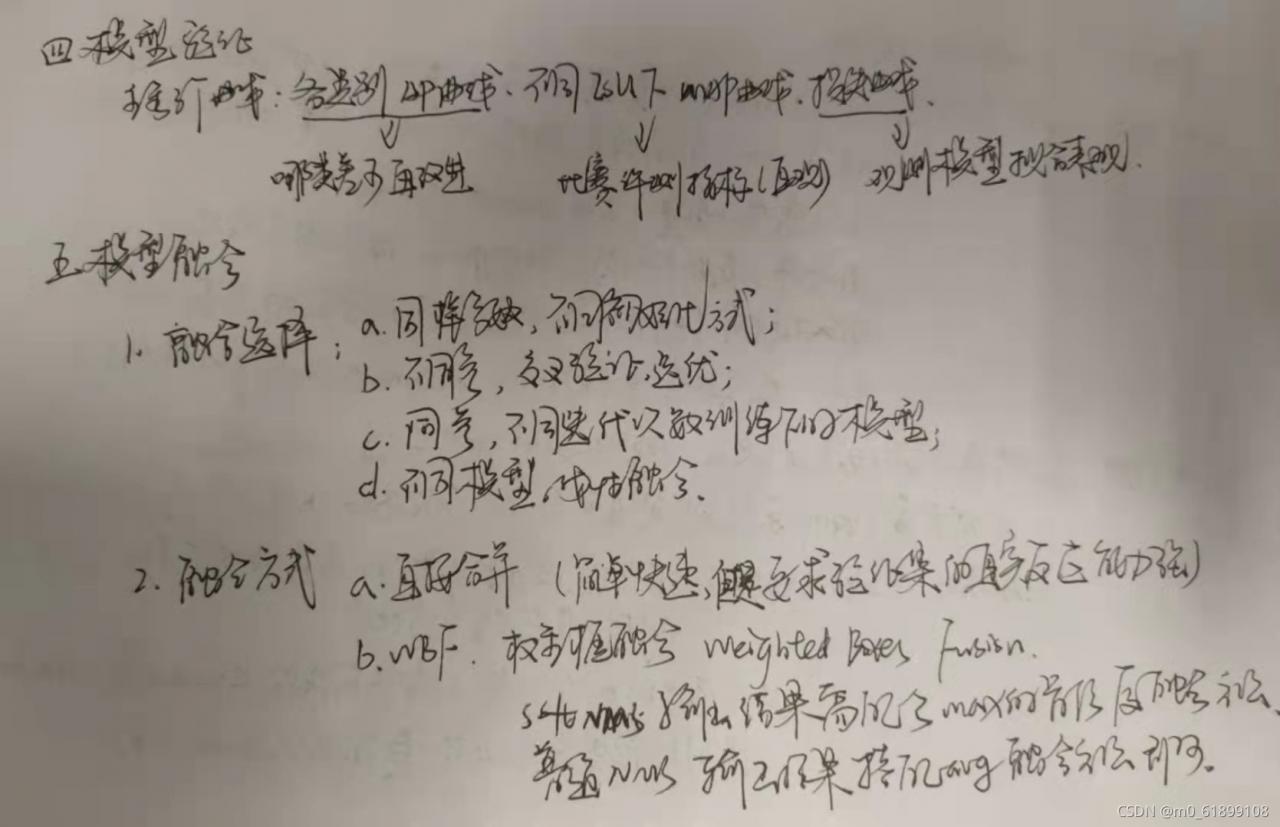 四 模型验证
推介曲线：各类别AP曲线、不同IoU下mAP曲线、损失曲线、
哪类差了再改进 比赛评测指标（直观） 观测模型拟合表现.
五 模型融合
1. 融合选择：a. 同样参数，不同初始化方式；
b. 不同参，交叉验证，选优；
c. 同参，不同迭代次数训练下的模型；
d. 不同模型，线性融合、
2. 融合方式 a. 直接合并（简单快速，但是要求验证集的真实反应能力强）
b. WBF. 权重框融合 Weighted Boxes Fusion.
soft NMS 输出结果需配合max的置信度融合方法、
普通NMS输出结果搭配avg融合方法即可。
CSDN @m0_61899108